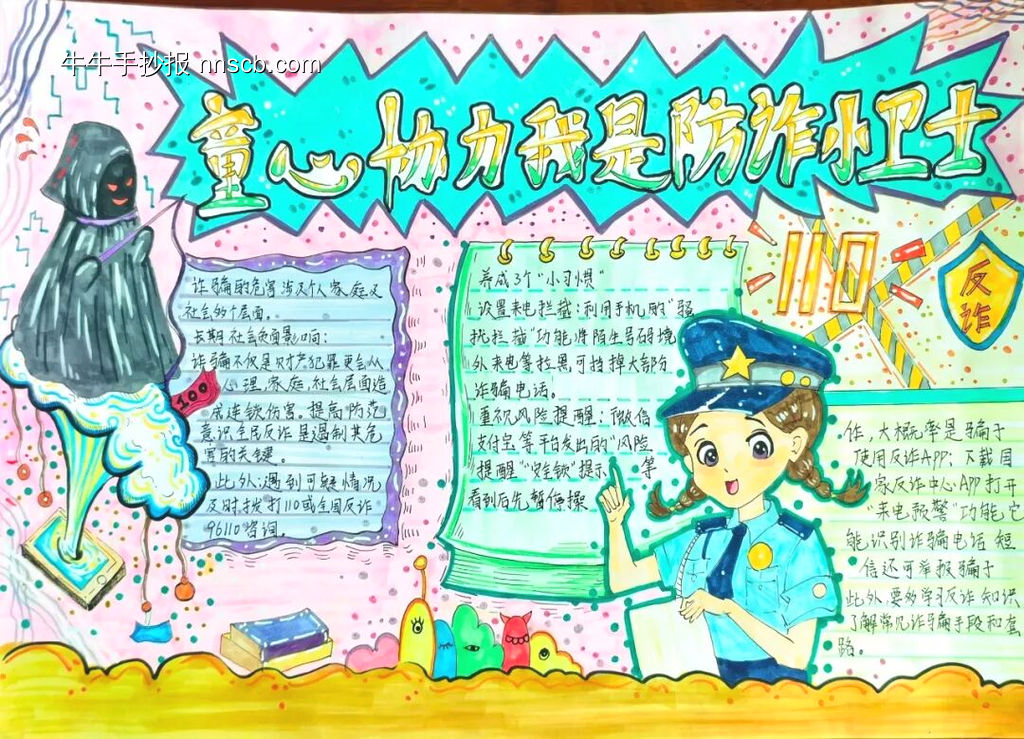 牛牛手抄报 nnscb.com
童心协力我是防诈小卫士
110
反
诈
诈骗的危害涉及个人家庭及
社会多个层面。
长期社会负面影响:
诈骗不仅是财产犯罪更会从
心理、家庭、社会层面造
成连锁伤害。提高防范
意识全民反诈是遏制其危
害的关键。
此外:遇到可疑情况
及时拨打110或全国反诈
96110咨询。
100
养成3个“小习惯”
设置来电拦截:利用手机的“骚
扰拦截”功能将陌生号码境
外来电等拉黑,可挡掉大部分
诈骗电话。
重视风险提醒:微信
支付宝等平台发出的“风险
提醒”“安全锁”提示 第
看到后先暂停操
作,大概率是骗子
使用反诈APP:下载国
家反诈中心APP打开
“来电预警”功能,它
能识别诈骗电话 短
信还可举报骗子
此外,要多学习反诈知识
了解常见诈骗手段和套
路。